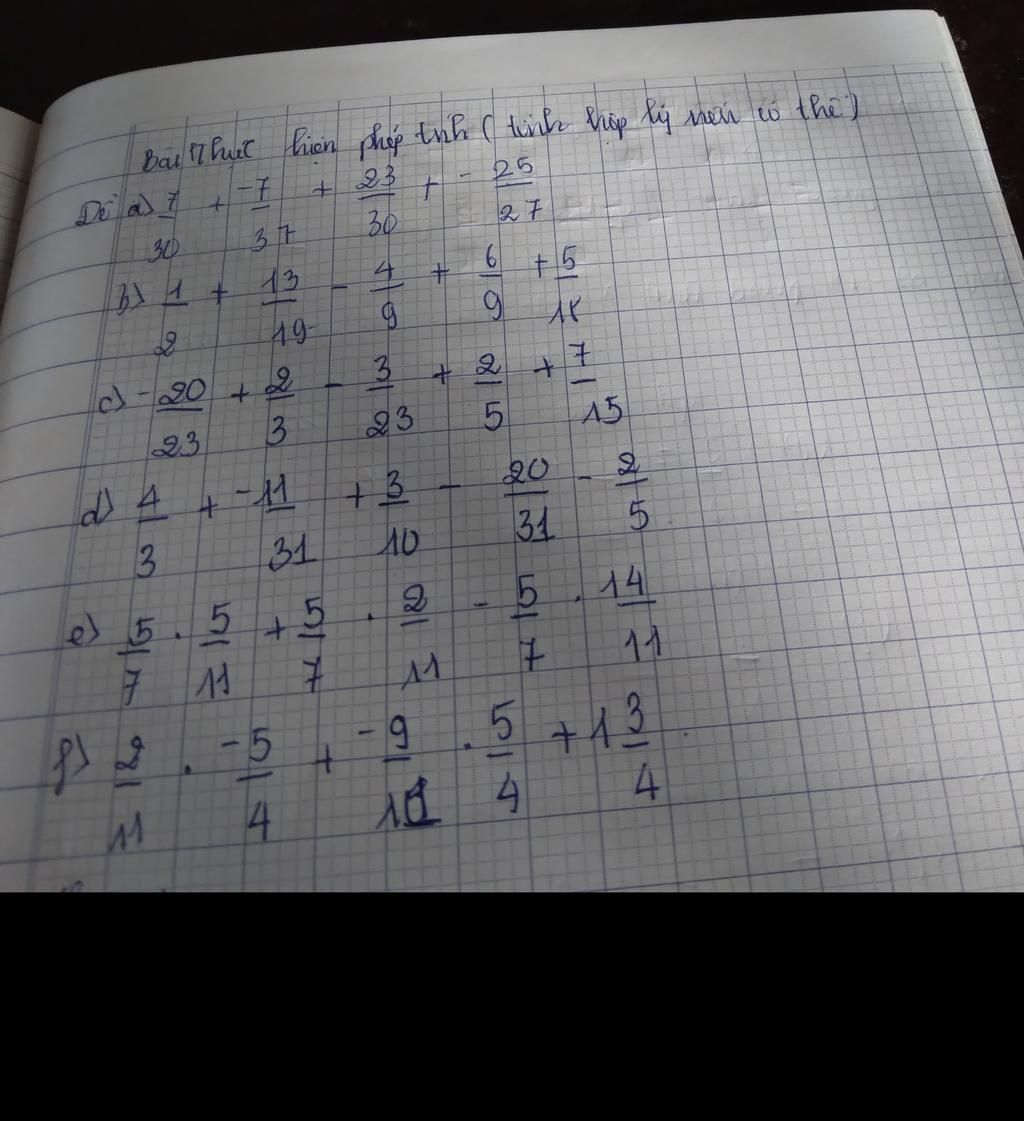 Bài 1 Thực hiện phép tính (tính hợp lý nếu có thể)
Đề a) 7/30 + -7/37 + 23/30 + - 25/27
b) 1/2 + 13/19 - 4/9 + 6/9 + 5/18
c) - 20/23 + 2/3 - 3/23 + 2/5 + 7/15
d) 4/3 + -11/31 + 3/10 - 20/31 - 2/5
e) 5/7 . 5/11 + 5/7 . 2/11 - 5/7 . 14/11
f) 2/11 . -5/4 + -9/11 . 5/4 + 1 3/4